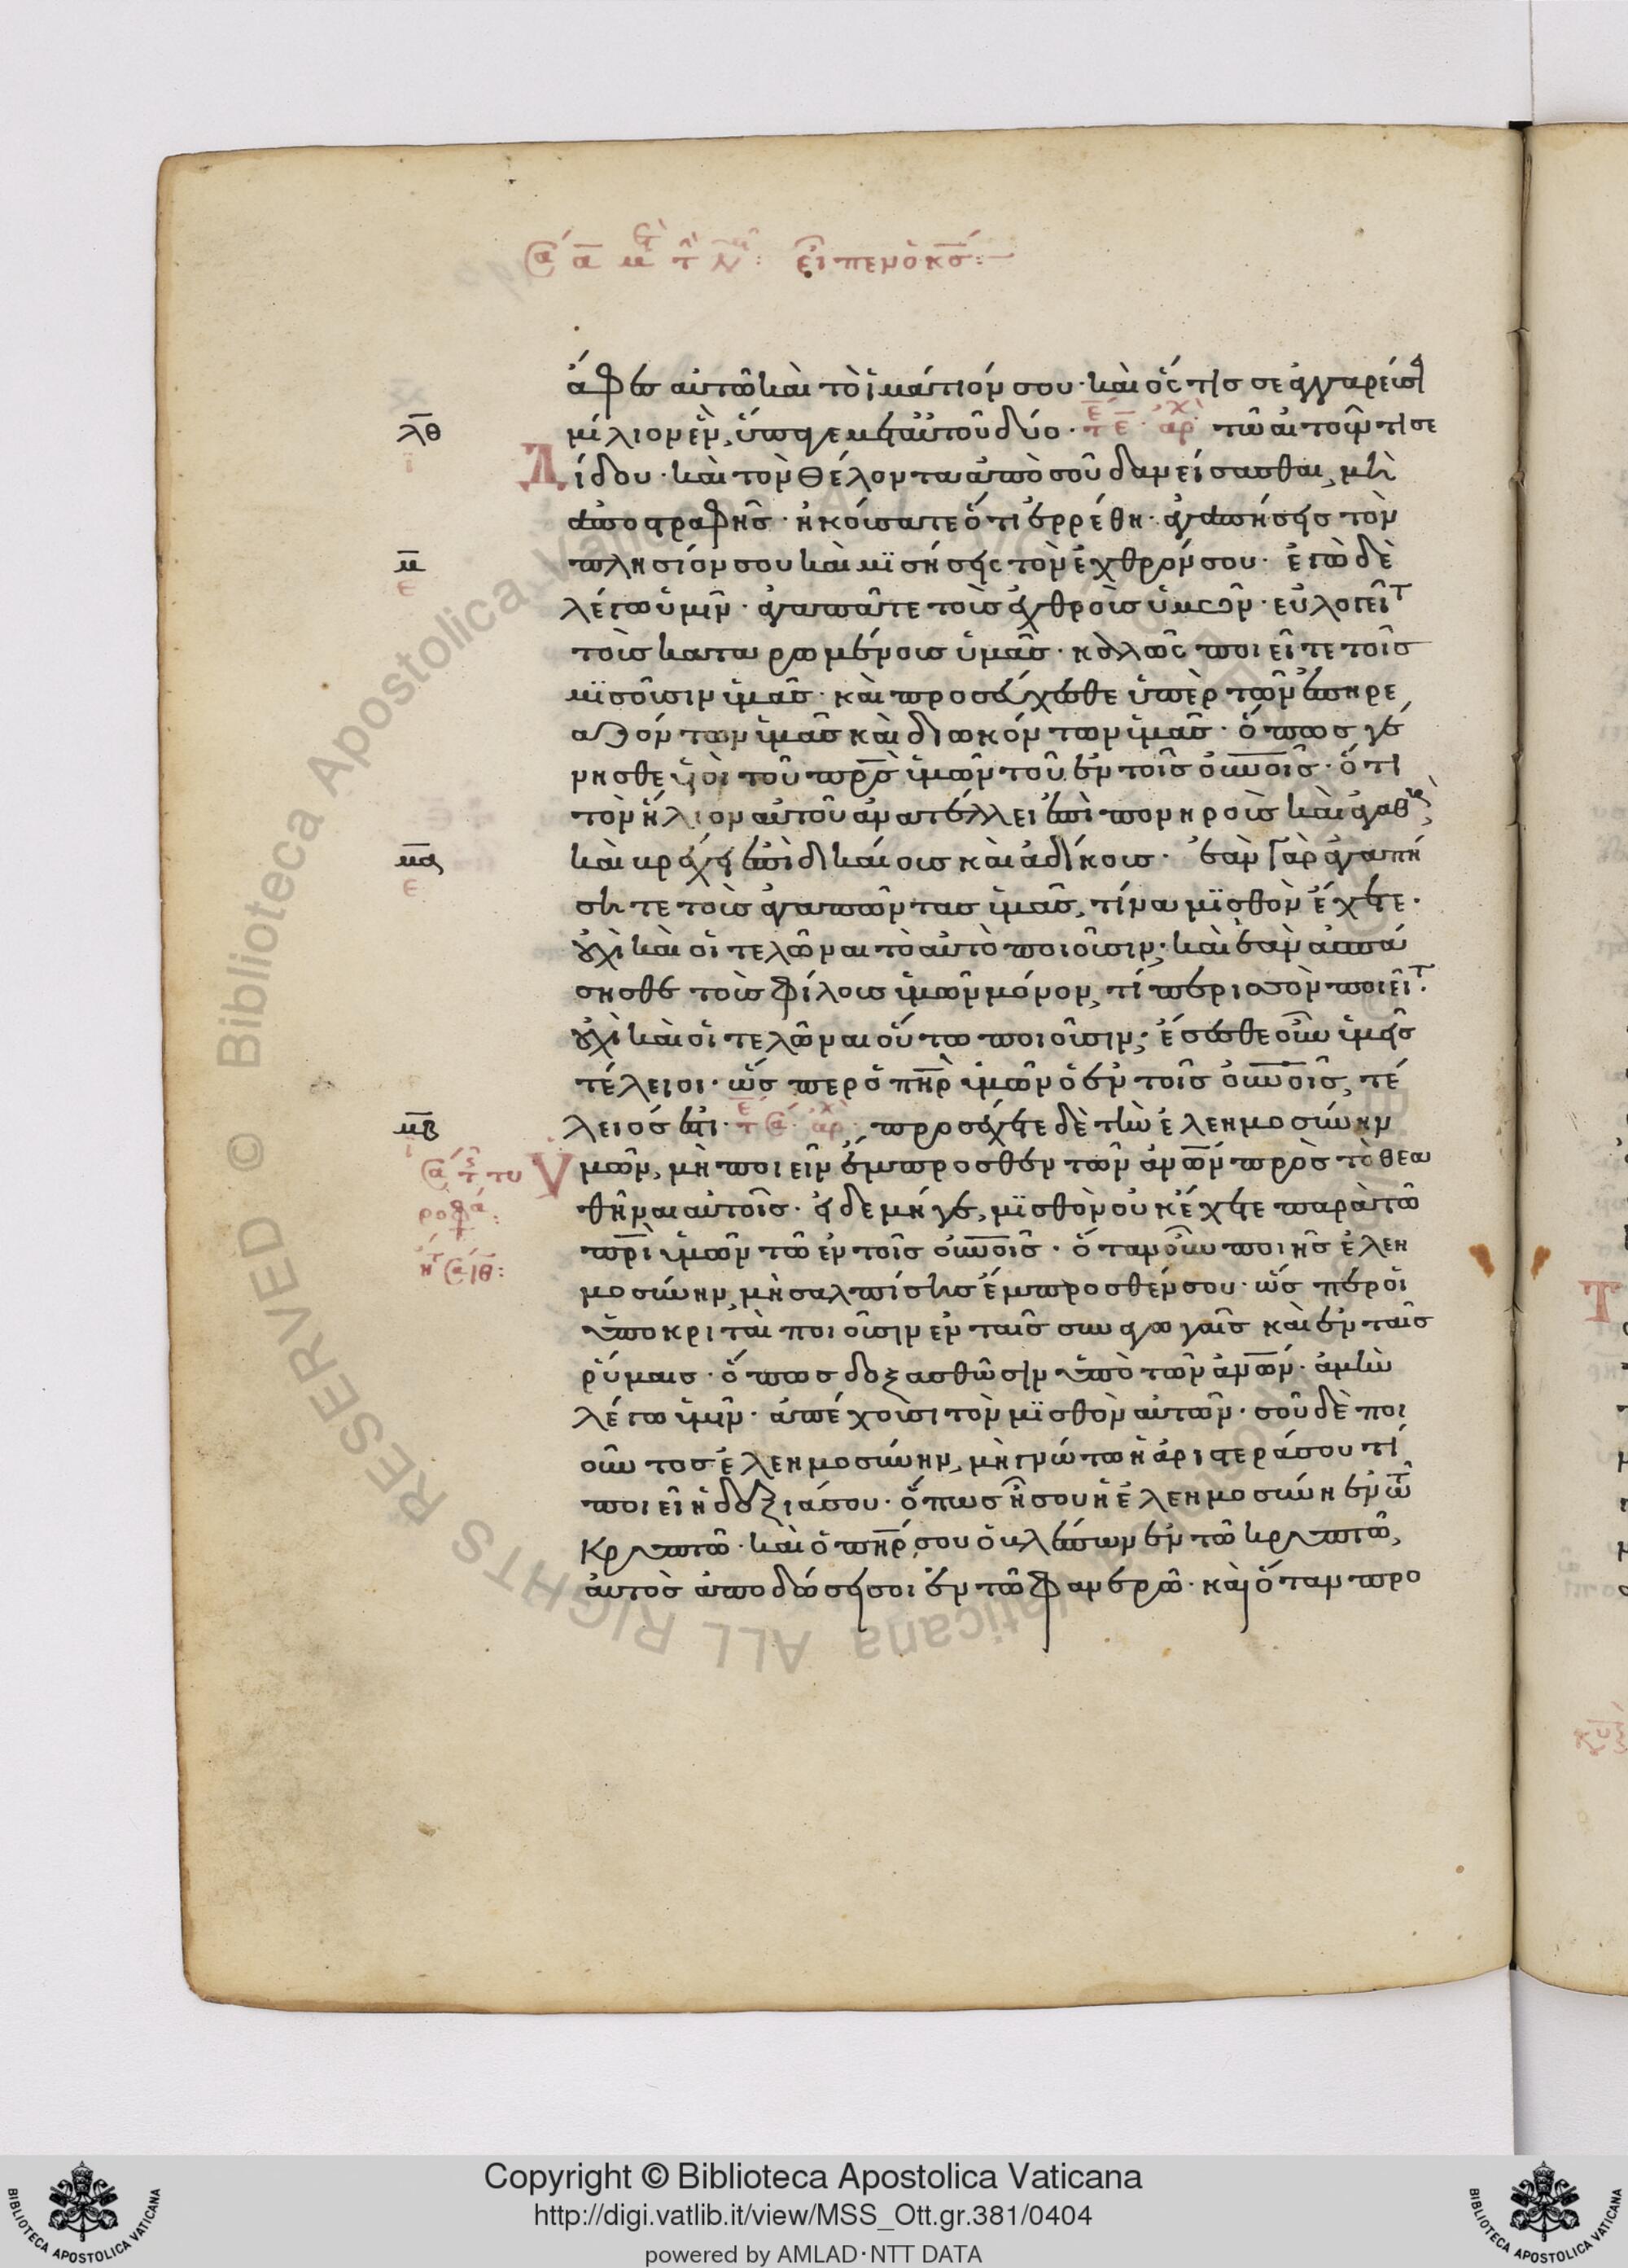 εἶπεν ὁ κς:
ἄφες αὐτῶ καὶ τὸ ἱμάτιόν σου· καὶ ὅστις σε ἀγγαρεύσει
λθ
μίλιον ἕν, ὕπαγε μετ' αὐτοῦ δύο· τε αρχ τῶ αἰτοῦντί σε
Δίδου· καὶ τὸν θέλοντα ἀπὸ σοῦ δανείσασθαι, μὴ
ἀποστραφῆς· ἠκούσατε ὅτι ἐρρέθη· ἀγαπήσεις τὸν
μ
ε
πλησίον σου καὶ μισήσεις τὸν ἐχθρόν σου· ἐγὼ δὲ
λέγω ὑμῖν· ἀγαπᾶτε τοὺς ἐχθροὺς ὑμῶν· εὐλογεῖτ
τοὺς καταρωμένους ὑμᾶς· καλῶς ποιεῖτε τοῖς
μισοῦσιν ὑμᾶς· καὶ προσεύχεσθε ὑπὲρ τῶν ἐπηρε
αζόντων ὑμᾶς καὶ διωκόντων ὑμᾶς· ὅπως γέ
νησθε υἱοὶ τοῦ πρς ὑμῶν τοῦ ἐν τοῖς οὐνοῖς· ὅτι
τὸν ἥλιον αὐτοῦ ἀνατέλλει ἐπὶ πονηροὺς καὶ ἀγαθοὺς
μα
ε
καὶ βρέχει ἐπὶ δικαίους καὶ ἀδίκους· ἐὰν γὰρ ἀγαπή
σητε τοὺς ἀγαπῶντας ὑμᾶς, τίνα μισθὸν ἔχετε·
οὐχὶ καὶ οἱ τελῶναι τὸ αὐτὸ ποιοῦσιν; καὶ ἐὰν ἀσπά
σησθε τοὺς φίλους ὑμῶν μόνον, τί περισσὸν ποιεῖτ·
οὐχὶ καὶ οἱ τελῶναι οὕτω ποιοῦσιν; ἔσεσθε οὖν ὑμεῖς
τέλειοι· ὥσπερ ὁ πηρ ὑμῶν ὁ ἐν τοῖς οὐνοῖς, τέ
μβ
λειός ἐστι· προσέχετε δὲ τὴν ἐλεημοσύνην
Υμῶν, μὴ ποιεῖν ἔμπροσθεν τῶν ἀνων πρὸς τὸ θεα
θῆναι αὐτοῖς· εἰ δὲ μή γε, μισθὸν οὐκ ἔχετε παρὰ τῶ
πρὶ ὑμῶν τῶ ἐν τοῖς οὐνοῖς· ὅταν οὖν ποιῆς ἐλεη
μοσύνην, μὴ σαλπίσης ἔμπροσθέν σου· ὥσπερ οἱ
ὑποκριταὶ ποιοῦσιν ἐν ταῖς συναγωγαῖς καὶ ἐν ταῖς
ρύμαις· ὅπως δοξασθῶσιν ὑπὸ τῶν ἀνων· ἀμὴν
λέγω ὑμῖν· ἀπέχουσι τὸν μισθὸν αὐτῶν· σοῦ δὲ ποι
οῦντος ἐλεημοσύνην, μὴ γνώτω ἡ ἀριστερά σου τί
ποιεῖ ἡ δεξιά σου· ὅπως ἦ σου ἡ ἐλεημοσύνη ἐν τῶ
Κρυπτῶ· καὶ ὁ πηρ σου ὁ βλέπων ἐν τῶ κρυπτῶ,
αὐτὸς ἀποδώσει σοι ἐν τῶ φανερῶ· καὶ ὅταν προ
© Biblioteca Apostolica Vaticana ALL RIGHTS RESERVED
Copyright © Biblioteca Apostolica Vaticana
http://digi.vatlib.it/view/MSS_Ott.gr.381/0404
powered by AMLAD·NTT DATA
BIBLIOTECA APOSTOLICA VATICANA
BIBLIOTECA APOSTOLICA VATICANA